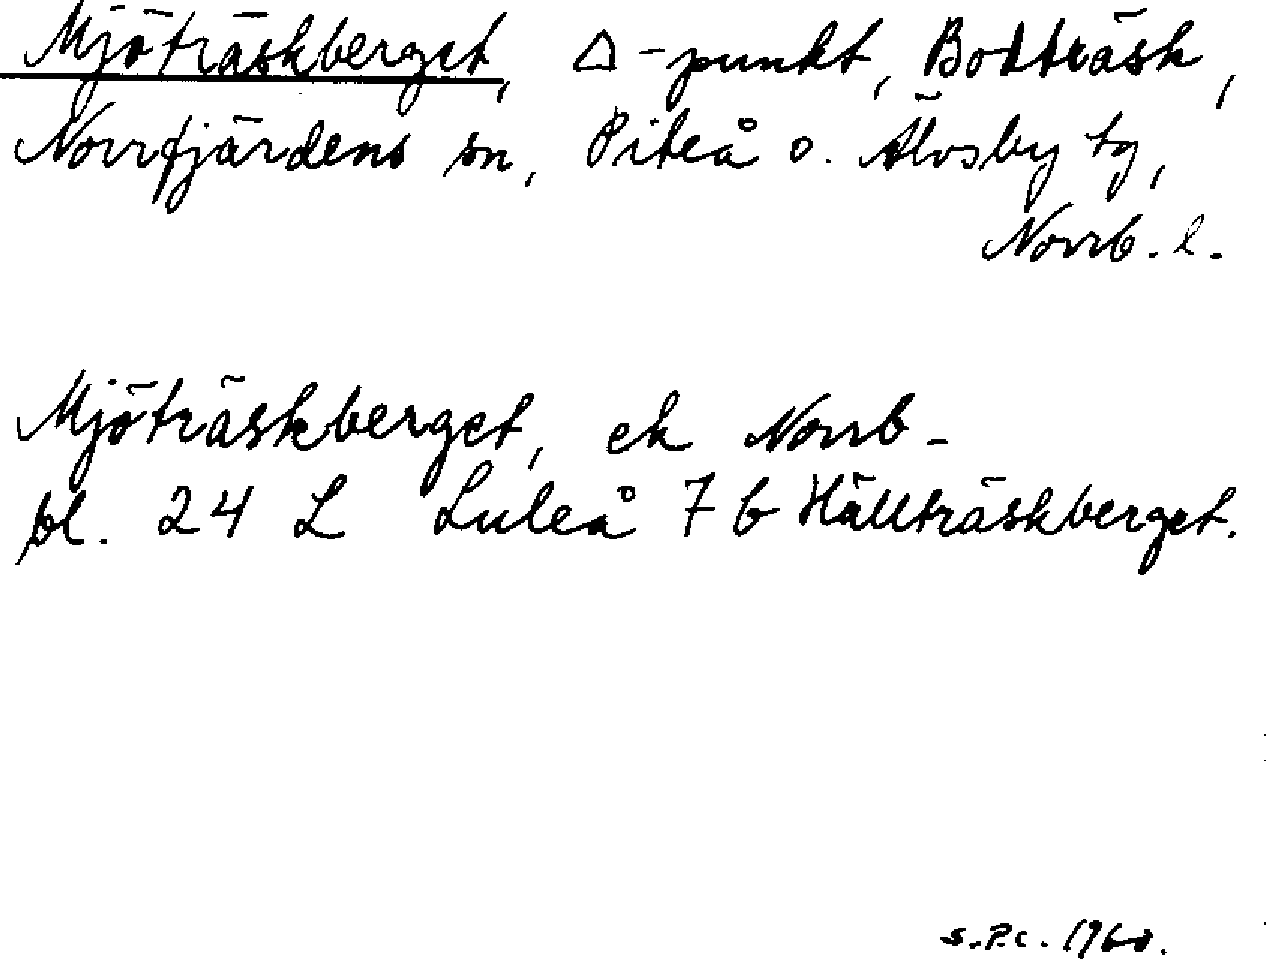 Mjöträskberget, △-punkt, Bodträsk,
Norrfjärdens sn, Piteå o. Älvsby tg,
Norrb. l.
Mjöträskberget, ek Norrb-
bl. 24 L Luleå 7 b Hällträskberget.
S.P.C. 1960.